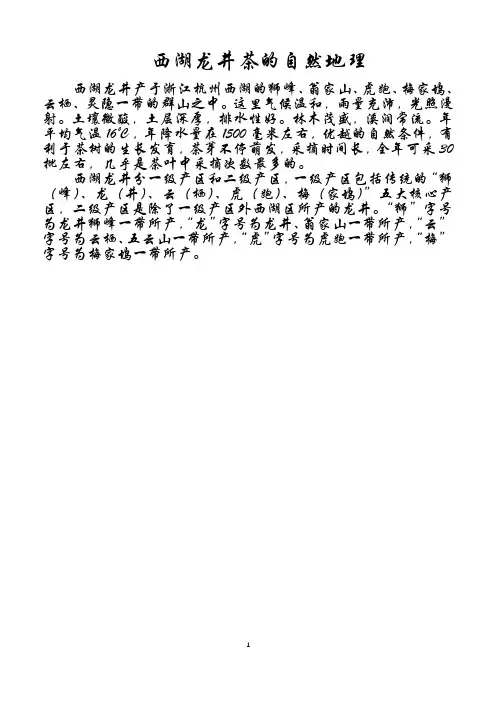 西湖龙井茶的自然地理
西湖龙井产于浙江杭州西湖的狮峰、翁家山、虎跑、梅家坞、
云栖、灵隐一带的群山之中。这里气候温和，雨量充沛，光照漫
射。土壤微酸，土层深厚，排水性好。林木茂盛，溪涧常流。年
平均气温16℃，年降水量在1500毫米左右，优越的自然条件，有
利于茶树的生长发育，茶芽不停萌发，采摘时间长，全年可采30
批左右，几乎是茶叶中采摘次数最多的。
西湖龙井分一级产区和二级产区，一级产区包括传统的“狮
（峰）、龙（井）、云（栖）、虎（跑）、梅（家坞）”五大核心产
区，二级产区是除了一级产区外西湖区所产的龙井。“狮”字号
为龙井狮峰一带所产，“龙”字号为龙井、翁家山一带所产，“云”
字号为云栖、五云山一带所产，“虎”字号为虎跑一带所产，“梅”
字号为梅家坞一带所产。
1